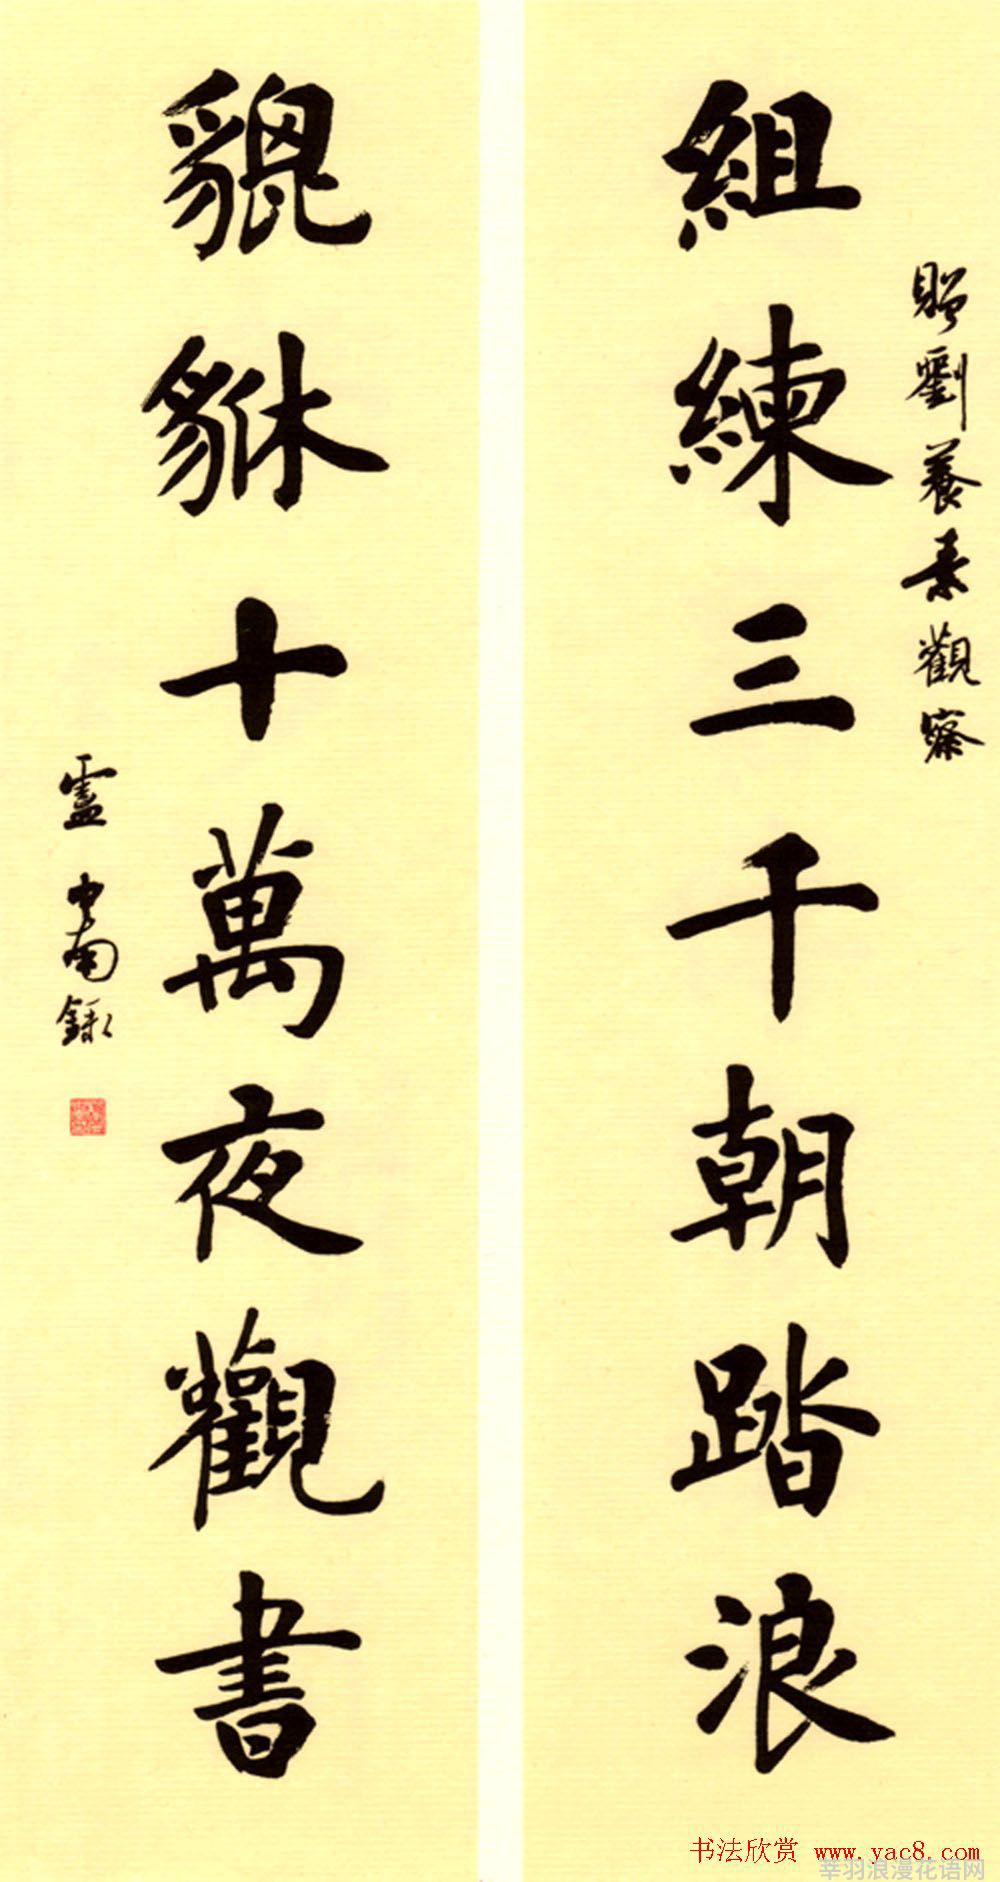 贈劉養素觀察
組練三千朝踏浪
貔貅十萬夜觀書
中南錄
书法欣赏 www.yac8.com
莘羽浪漫花语网